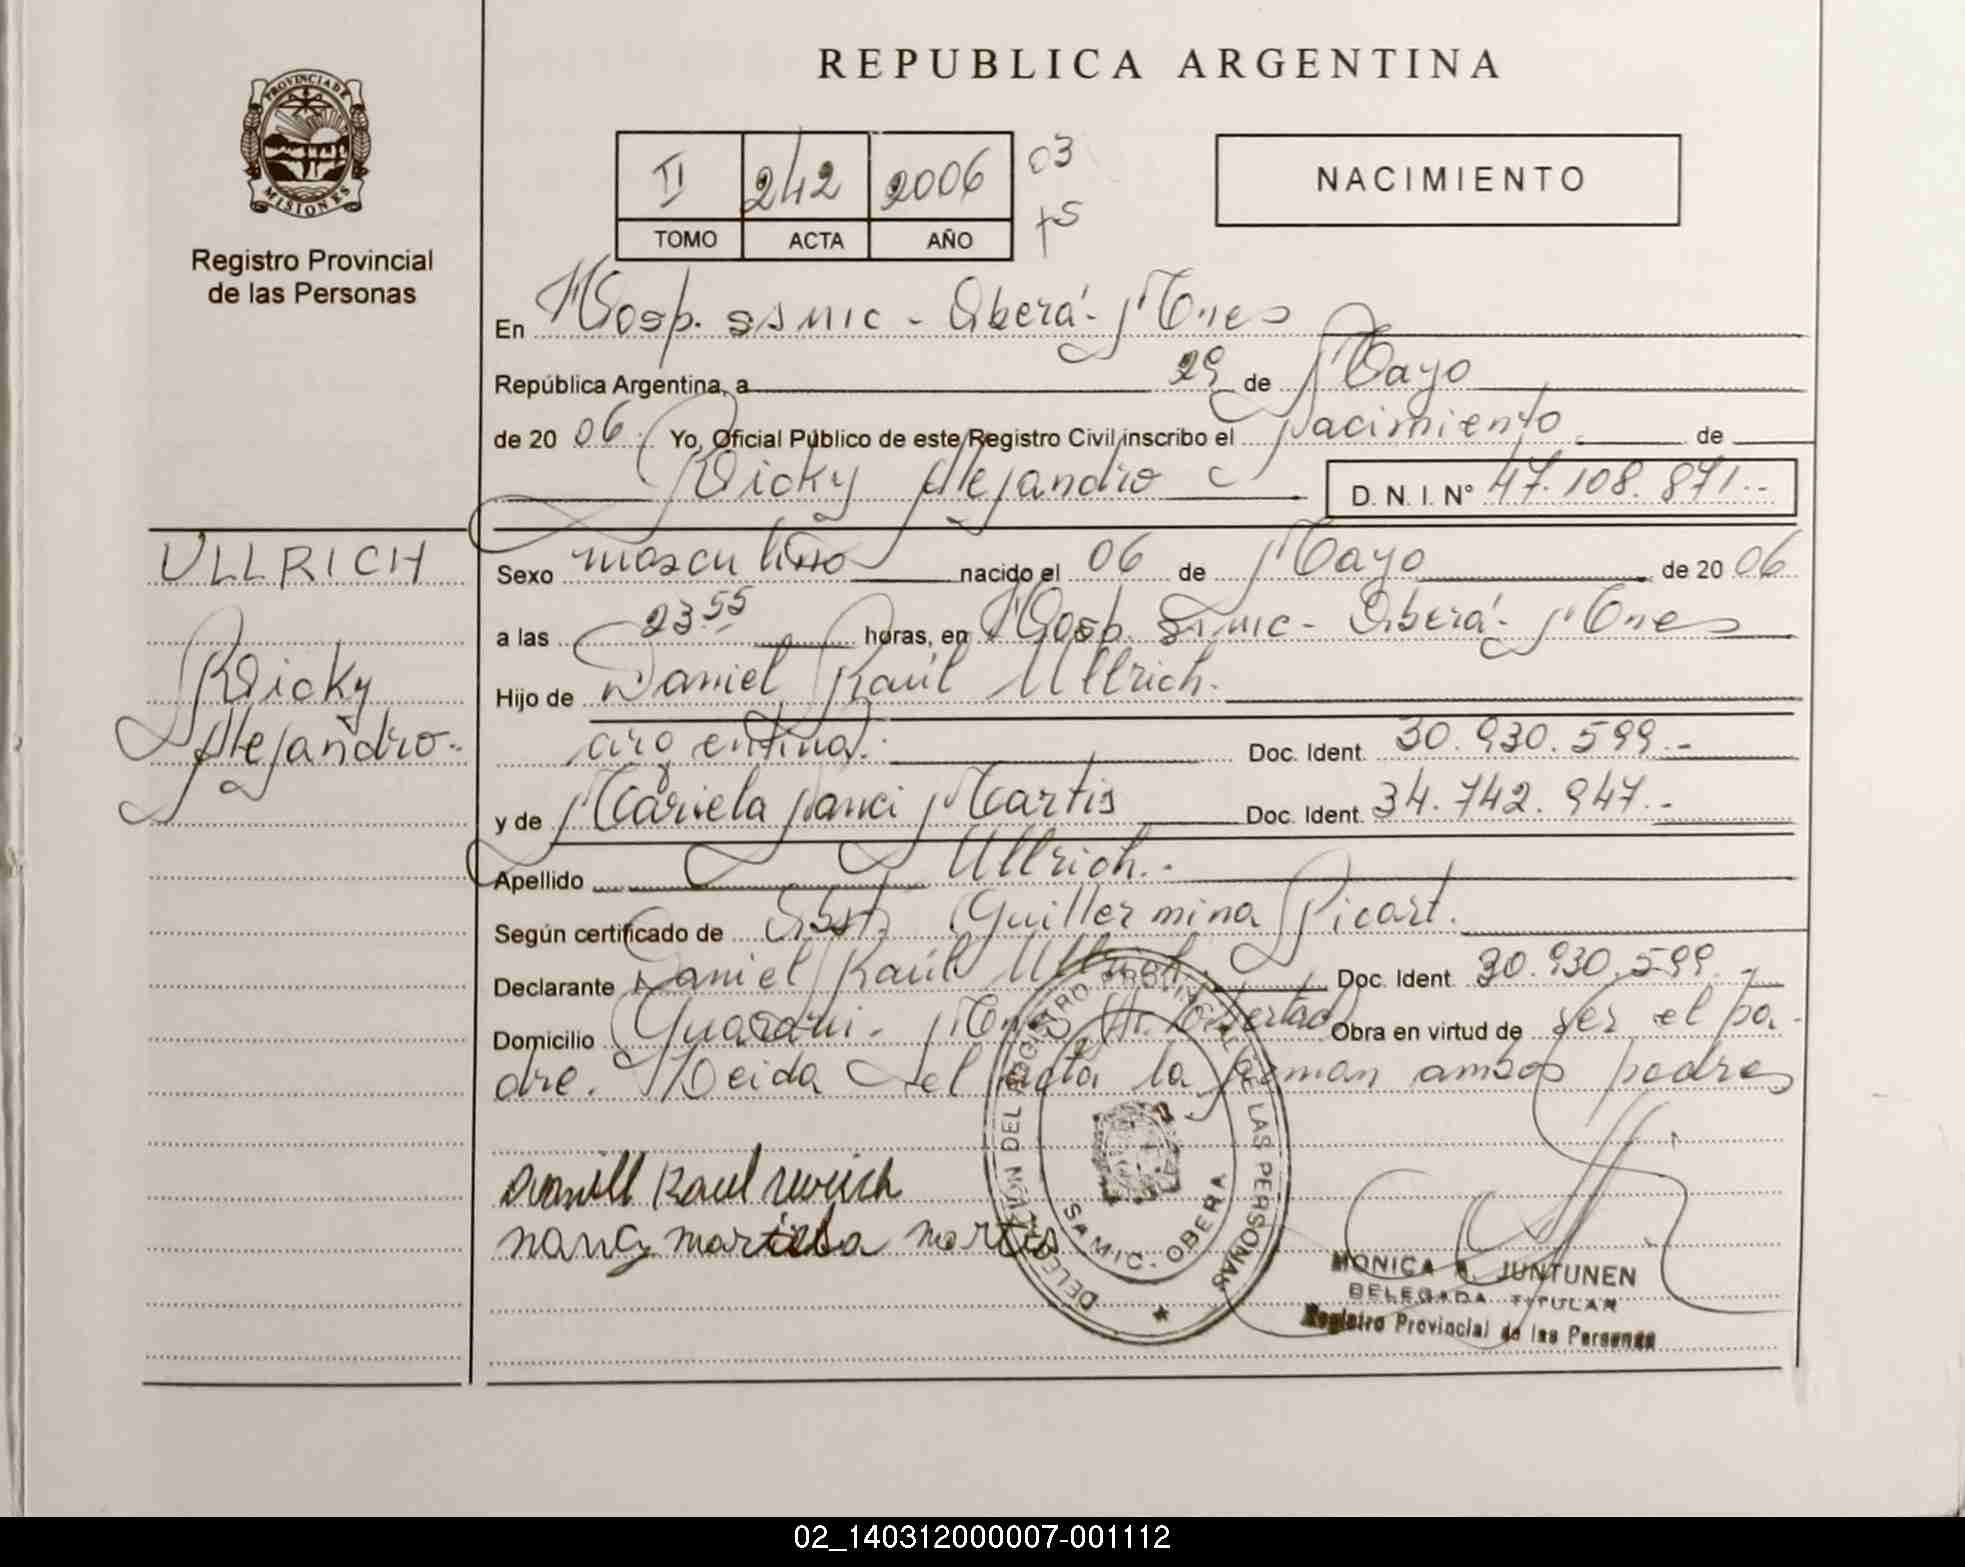 REPUBLICA ARGENTINA
PROVINCIA DE
MISIONES
Registro Provincial
de las Personas
II 242 2006 03
TOMO ACTA AÑO
NACIMIENTO
En Hosp. SAMIC - Oberá - Mnes
República Argentina, a 29 de Mayo
de 20 06. Yo, Oficial Público de este Registro Civil inscribo el Nacimiento de
Ricky Alejandro D. N. I. Nº 47.108.871.-
ULLRICH
Ricky
Alejandro.-
Sexo masculino nacido el 06 de Mayo de 20 06
a las 23 55 horas, en Hosp. Samic - Oberá - Mnes
Hijo de Daniel Raúl Ullrich.
argentina.- Doc. Ident. 30.930.599.-
y de Mariela Nanci Martis Doc. Ident. 34.742.947.-
Apellido Ullrich.-
Según certificado de Obst. Guillermina Picart.
Declarante Daniel Raúl Ullrich. Doc. Ident. 30.930.599.-
Domicilio Guaraní - Mnes Obra en virtud de ser el pa-
dre. Leida el acta la firman ambos padres
Raul
nancy mariela martis
DELEGACIÓN DEL REGISTRO PROVINCIAL DE LAS PERSONAS
SAMIC. - OBERA
MONICA JUNTUNEN
DELEGADA TITULAR
Registro Provincial de las Personas
02_140312000007-001112